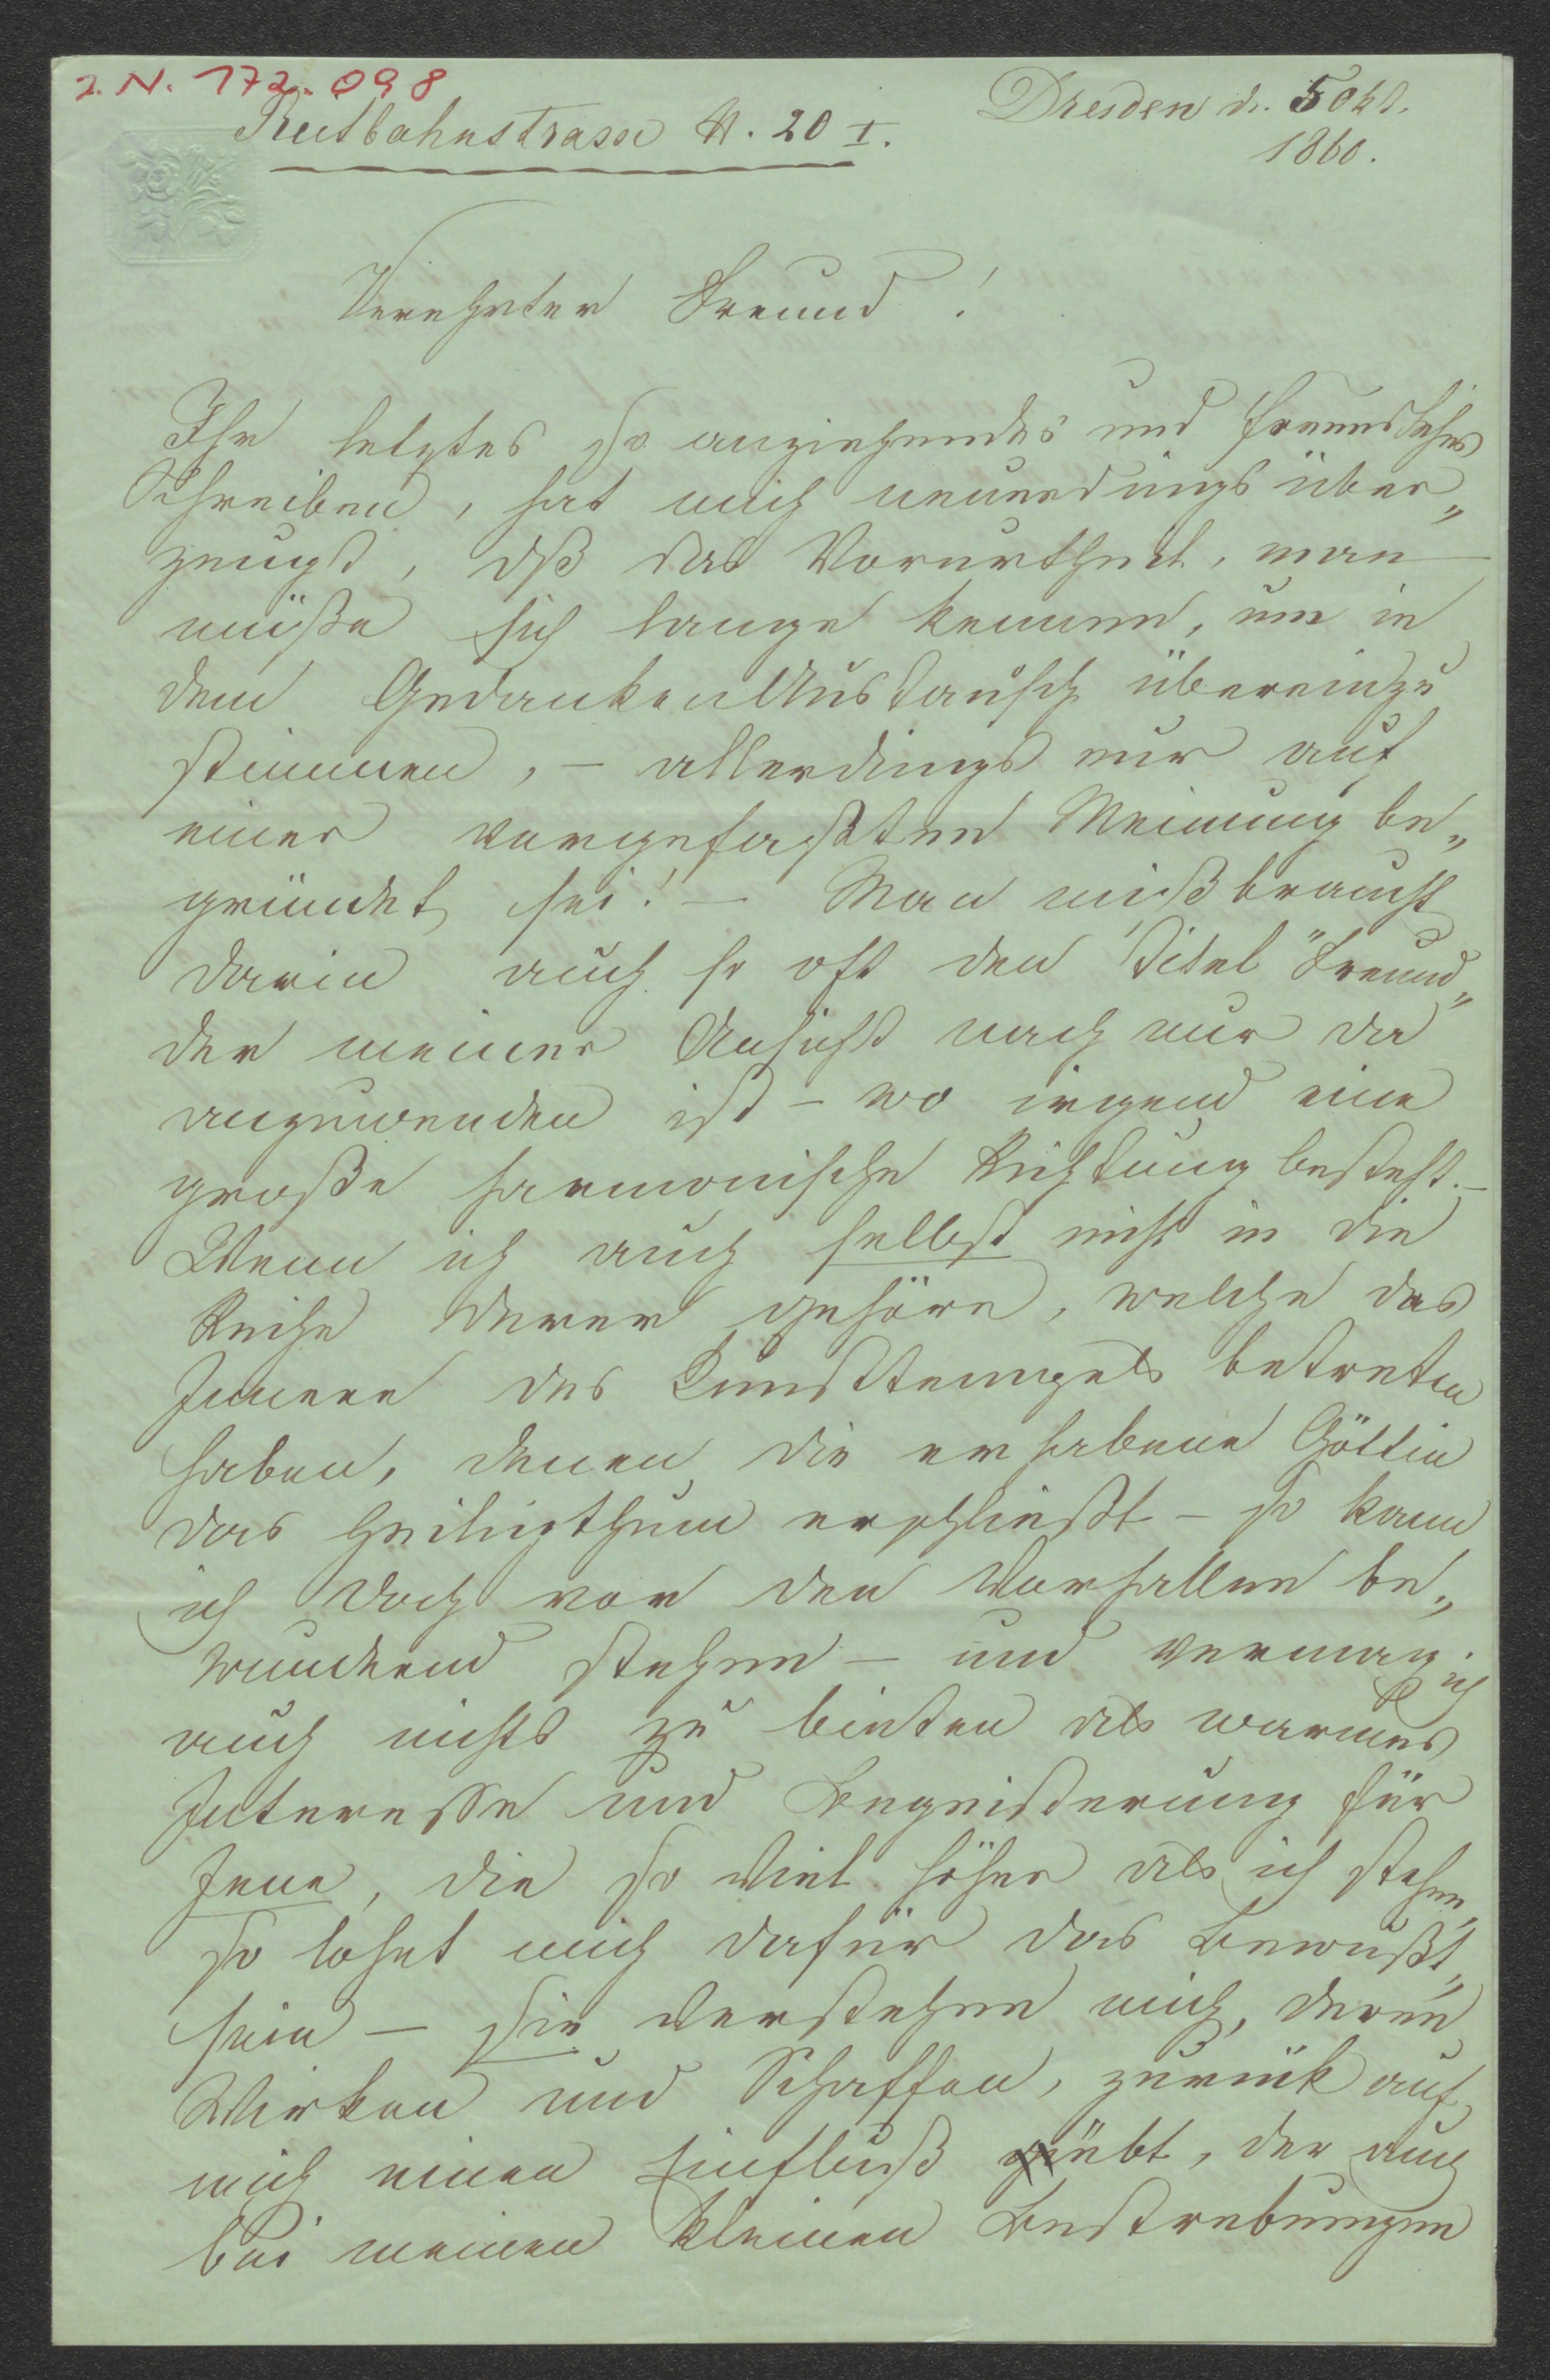 I. N. 172.098
Reitbahnstrasse N. 20 I.
Dresden d. 5 Okt.
1860.
Verehrter Freund!
Ihr letztes so anziehendes und
Schreiben, hat mich neuerdings über„
zeugt, dß das Vorurtheil, man
müße sich lange kennen, um in
dem GedankenAustausch übereinzu
stimmen, – allerdings nur auf
einer vorgefaßten Meinung be„
gründet sei! – Man mißbraucht
darin auch so oft den Titel "Freund„
der meiner Ansicht nach nur da
anzuwenden ist – wo irgend eine
große harmonische Richtung besteht. –
Wenn ich auch selbst nicht in die
Reihe derer gehöre, welche das
Innere des Kunsttempels betreten
haben, denen die erhabene Göttin
das Heiligthum erschließt – so kann
ich doch vor den Vorhallen be„
wundernd stehen – und vermag ich
auch nichts zu bieten als warmes
Interesse und Begeisterung für
Jene, die so viel höher als ich stehen,
so lohnt mich dafür das Bewußt„
sein – Sie verstehen mich, deren
Wirken und Schaffen, zurück auf
mich einen Einfluß übt, der auch
bei meinen kleinen Bestrebungen